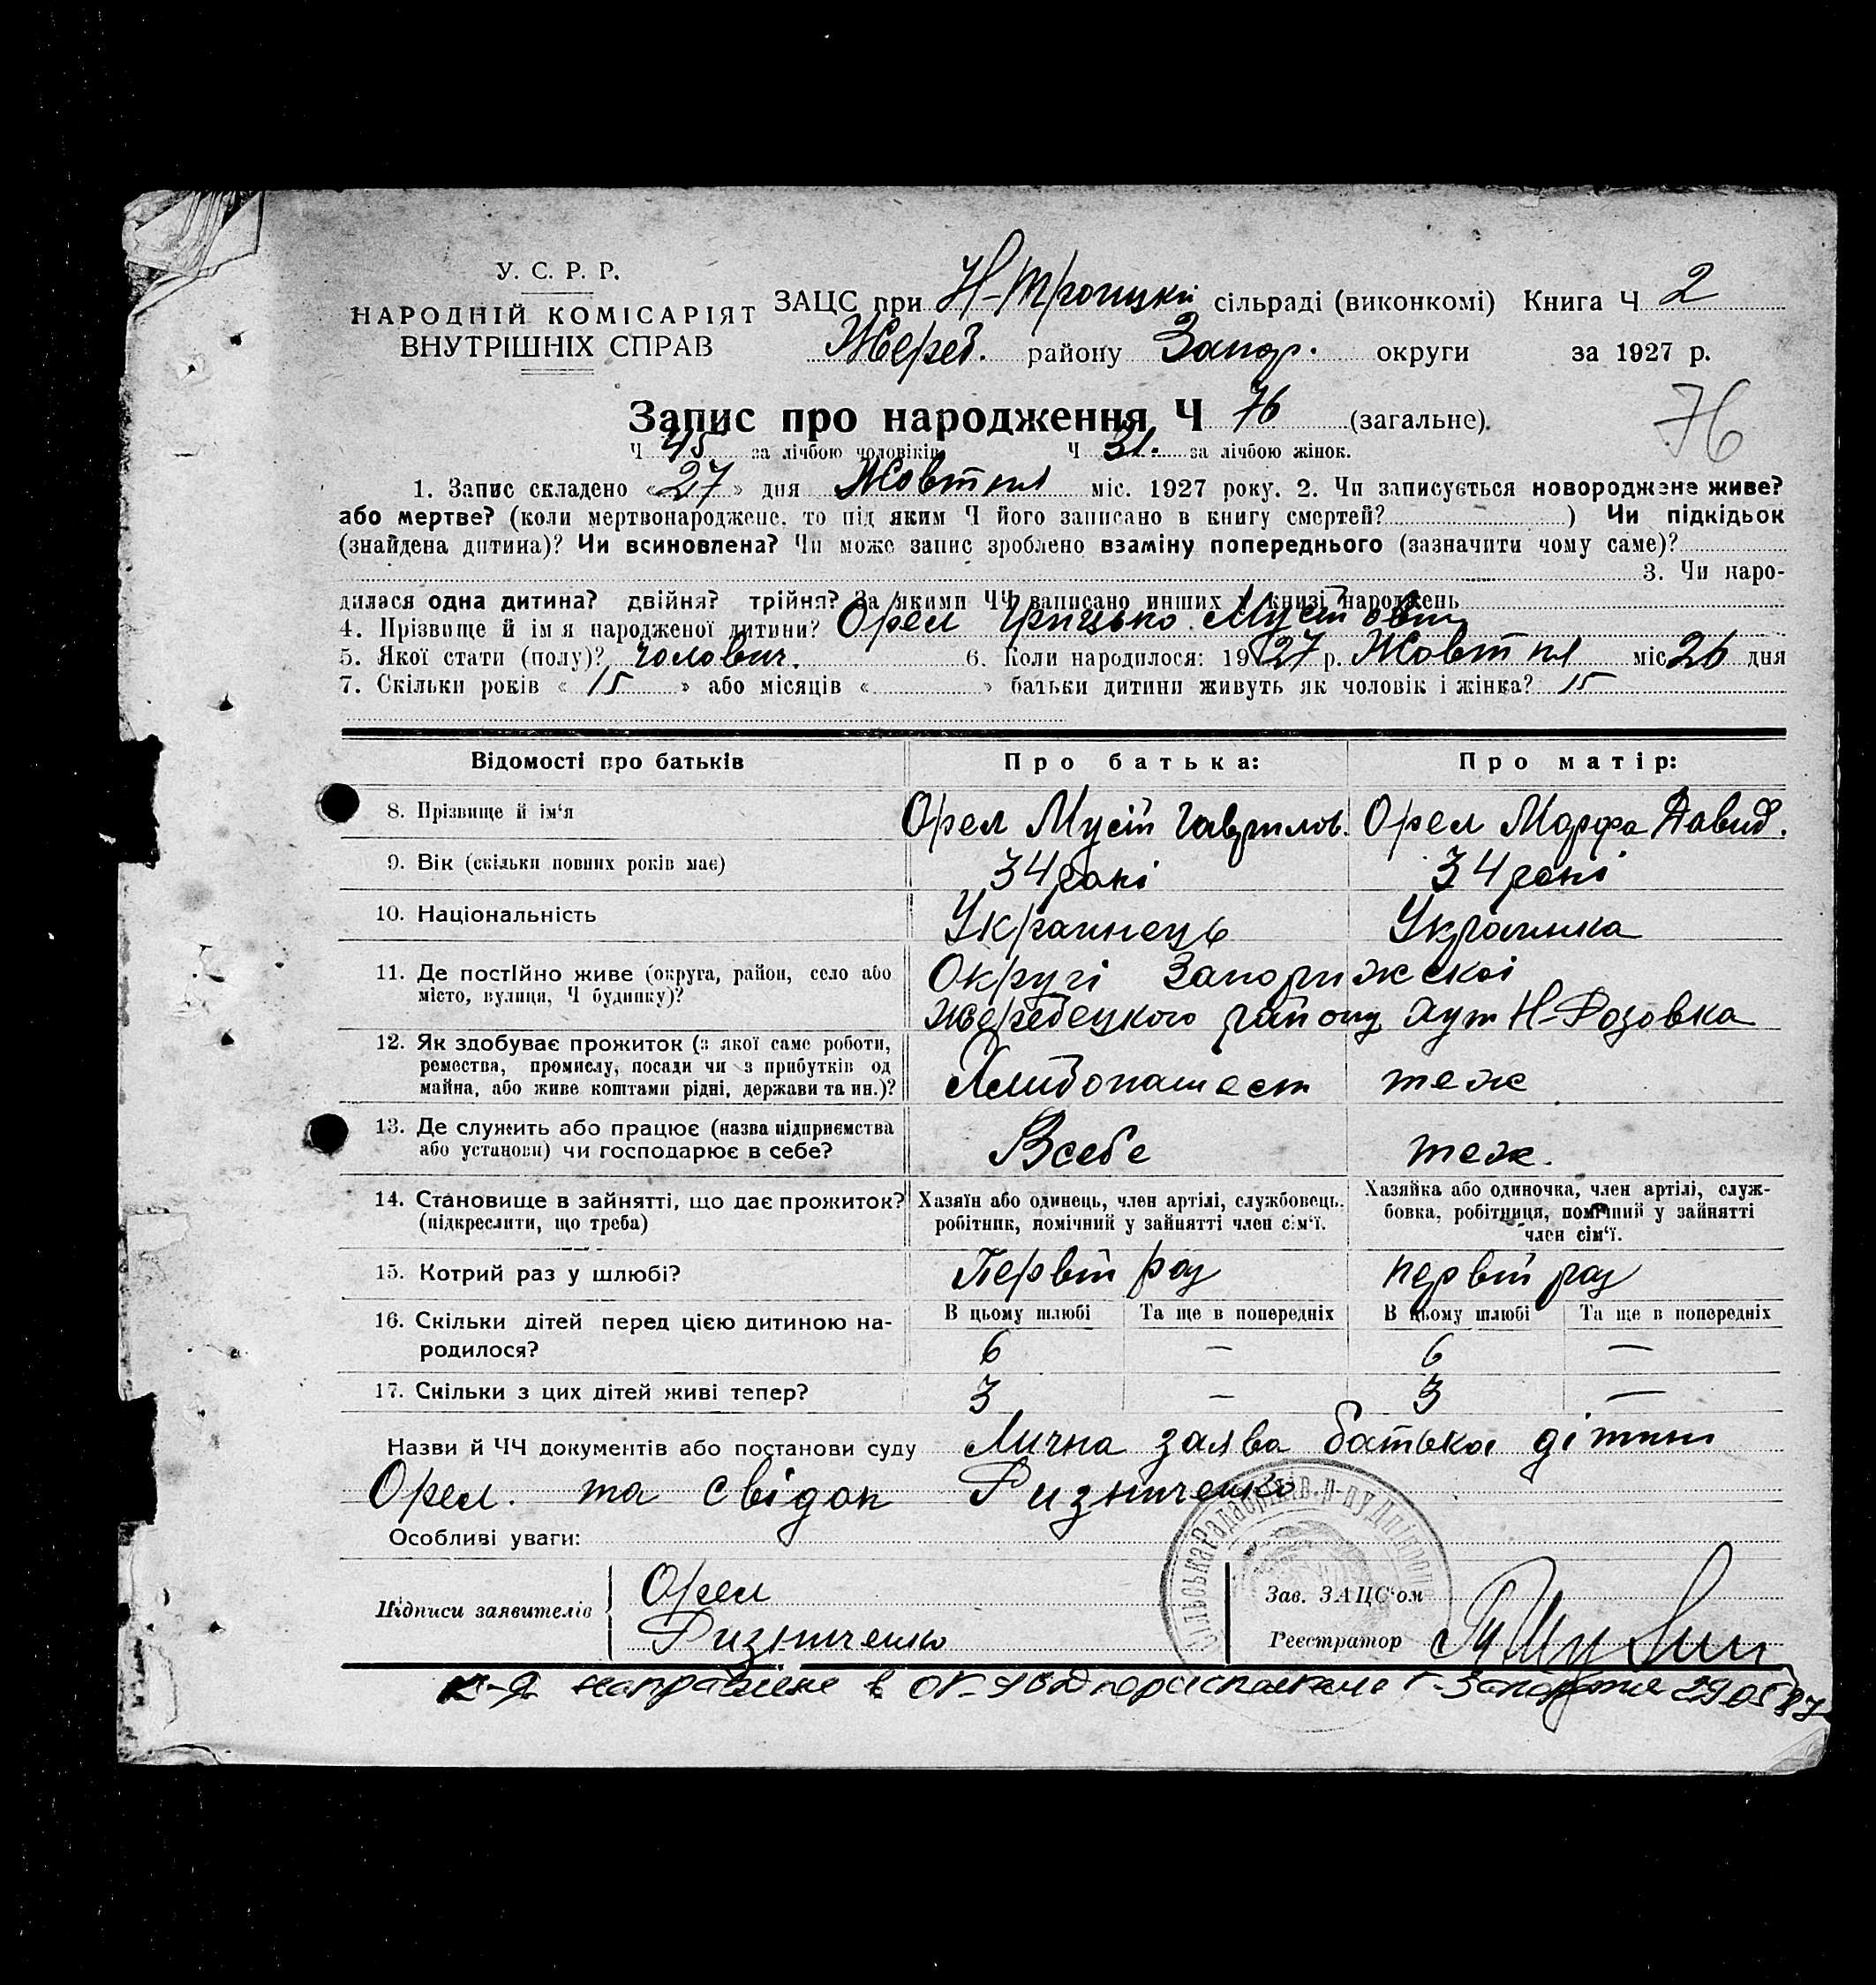 У. С. Р. Р.
НАРОДНІЙ КОМІСАРІЯТ
ВНУТРІШНІХ СПРАВ
ЗАЦС при Н-Троицкій сільраді (виконкомі) Книга Ч 2
Жереб. району Запор. округи за 1927 р.
Запис про народження Ч 76 (загальне).
76
Ч 45 за лічбою чоловіків Ч 31. за лічбою жінок.
1. Запис складено «27» дня Жовтня міс. 1927 року. 2. Чи записується новороджене живе?
або мертве? (коли мертвонароджене, то під яким Ч його записано в книгу смертей? ) Чи підкідьок
(знайдена дитина)? Чи всиновлена? Чи може запис зроблено взаміну попереднього (зазначити чому саме)?
3. Чи наро-
дилася одна дитина? двійня? трійня? За якими ЧЧ записано инших у книзі народжень
4. Прізвище й ім я народженої дитини? Орел Грицько Мусійович
5. Якої стати (полу)? чолович. 6. Коли народилося: 1927 р. Жовтня міс 26 дня
7. Скільки років « 15 » або місяців « » батьки дитини живуть як чоловік і жінка? 15
Відомості про батьків Про батька: Про матір:
8. Прізвище й ім'я Орел Мусій Гаврилов. Орел Марфа Давид.
9. Вік (скільки повних років має) 34 рокі 34 рокі
10. Національність Українець Українка
11. Де постійно живе (округа, район, село або Округі Запоріжскої
місто, вулиця, Ч будинку)? Жеребецкого району хут Н-Розовка
12. Як здобуває прожиток (з якої саме роботи,
ремества, промислу, посади чи з прибутків од
майна, або живе коштами рідні, держави та ин.)? Хлибопашест теж
13. Де служить або працює (назва підприємства
або установи) чи господарює в себе? Всебе теж.
14. Становище в зайнятті, що дає прожиток?
(підкреслити, що треба)
Хазяїн або одинець, член артілі, службовець.
робітник, помічний у зайнятті член сім'ї.
Хазяйка або одиночка, член артілі, служ-
бовка, робітниця, помічний у зайнятті
член сім'ї.
15. Котрий раз у шлюбі? Первій раз первій раз
В цьому шлюбі Та ще в попередніх В цьому шлюбі Та ще в попередніх
16. Скільки дітей перед цією дитиною на-
родилося? 6 — 6 —
17. Скільки з цих дітей живі тепер? 3 — 3 —
Назви й ЧЧ документів або постанови суду Лична заява батька дітини
Орел. та свідок Ризниченко
Особливі уваги:
Підписи заявителів Орел
Ризниченко
Зав. ЗАЦС'ом
Реєстратор
направлене в г. Запорожье 29 05